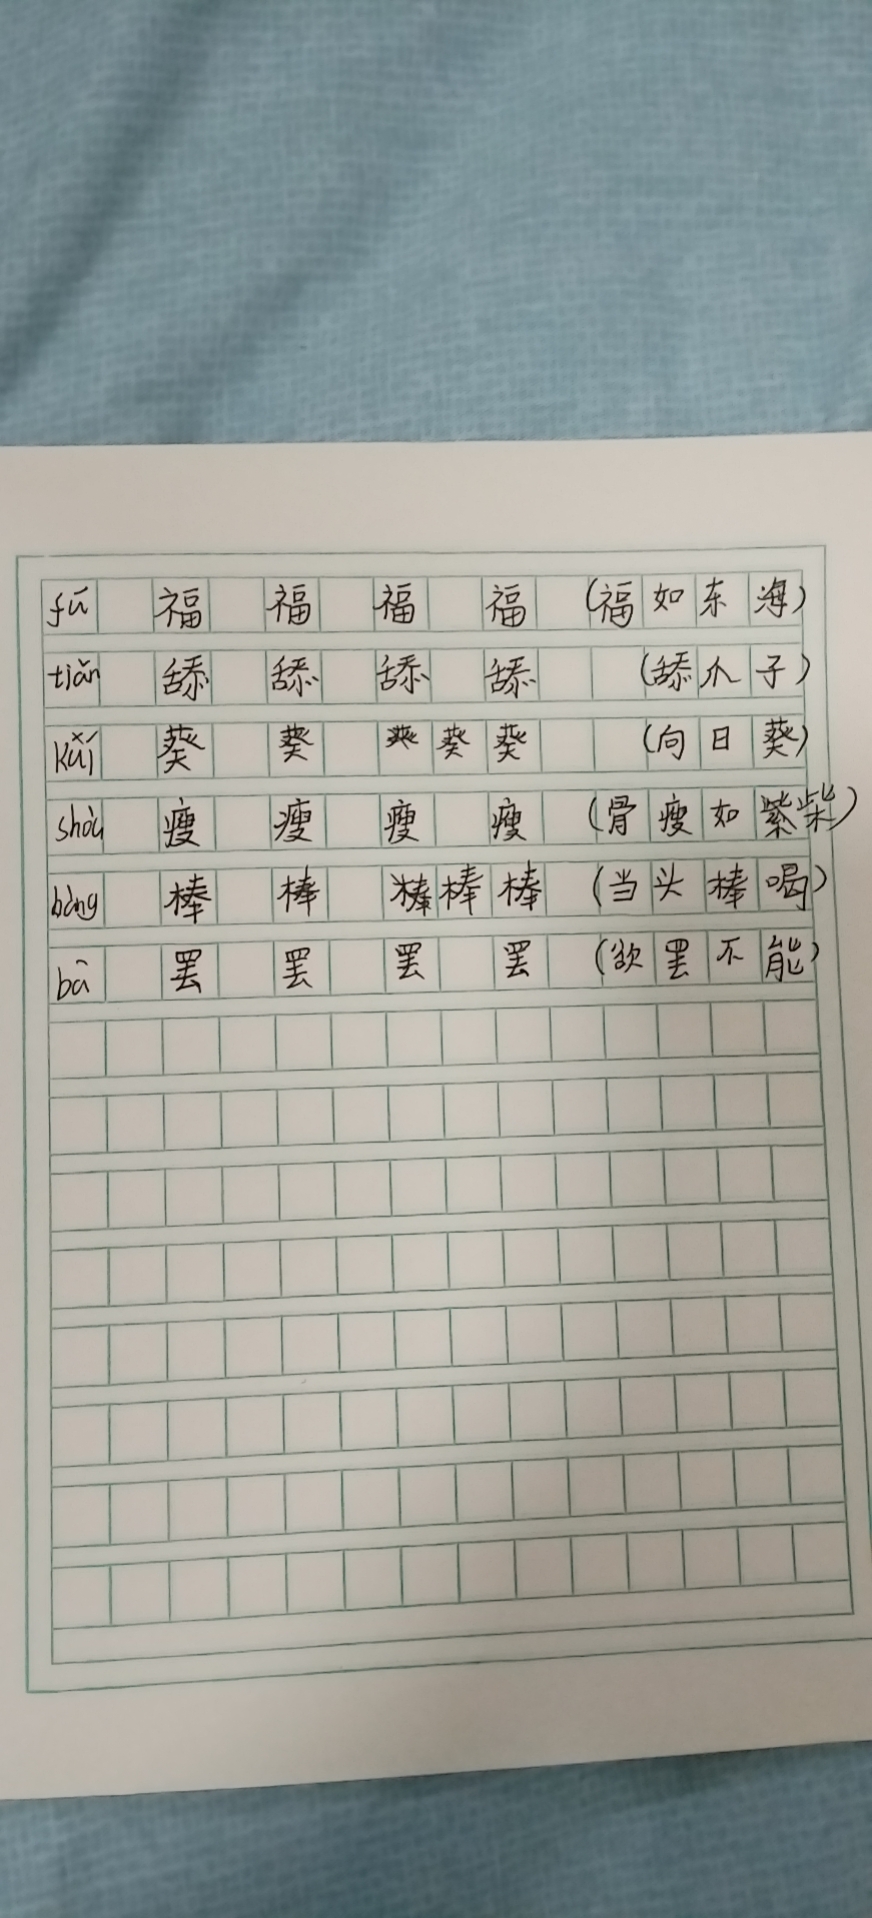 fú 福 福 福 福 (福如东海)
tiǎn 舔 舔 舔 舔 (舔爪子)
kuí 葵 葵 葵 葵 (向日葵)
shòu 瘦 瘦 瘦 瘦 (骨瘦如柴)
bàng 棒 棒 棒 棒 (当头棒喝)
bà 罢 罢 罢 罢 (欲罢不能)